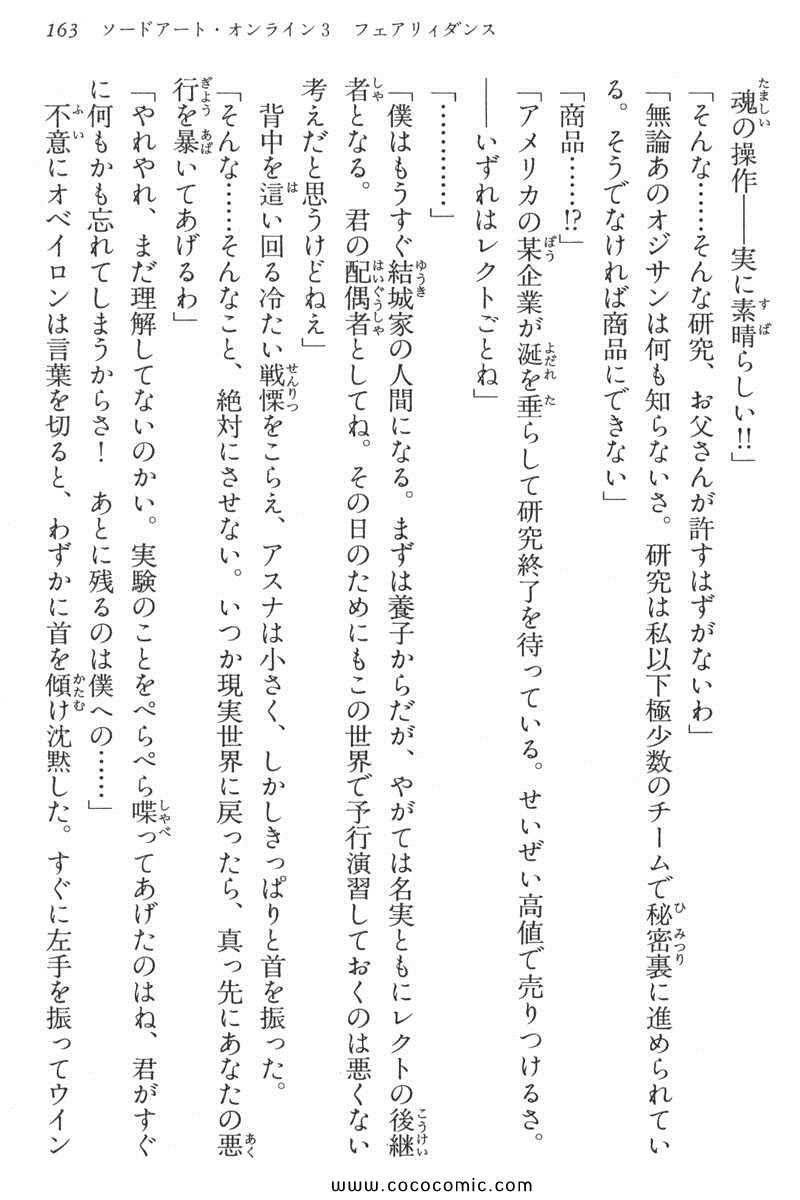 163　ソードアート・オンライン3　フェアリィダンス
魂の操作――実に素晴らしい!!」
「そんな……そんな研究、お父さんが許すはずがないわ」
「無論あのオジサンは何も知らないさ。研究は私以下極少数のチームで秘密裏に進められてい
る。そうでなければ商品にできない」
「商品……!?」
「アメリカの某企業が涎を垂らして研究終了を待っている。せいぜい高値で売りつけるさ。
――いずれはレクトごとね」
「…………」
「僕はもうすぐ結城家の人間になる。まずは養子からだが、やがては名実ともにレクトの後継
者となる。君の配偶者としてね。その日のためにもこの世界で予行演習しておくのは悪くない
考えだと思うけどねえ」
背中を這い回る冷たい戦慄をこらえ、アスナは小さく、しかしきっぱりと首を振った。
「そんな……そんなこと、絶対にさせない。いつか現実世界に戻ったら、真っ先にあなたの悪
行を暴いてあげるわ」
「やれやれ、まだ理解してないのかい。実験のことをぺらぺら喋ってあげたのはね、君がすぐ
に何もかも忘れてしまうからさ！　あとに残るのは僕への……」
不意にオベイロンは言葉を切ると、わずかに首を傾け沈黙した。すぐに左手を振ってウイン
www.cococomic.com